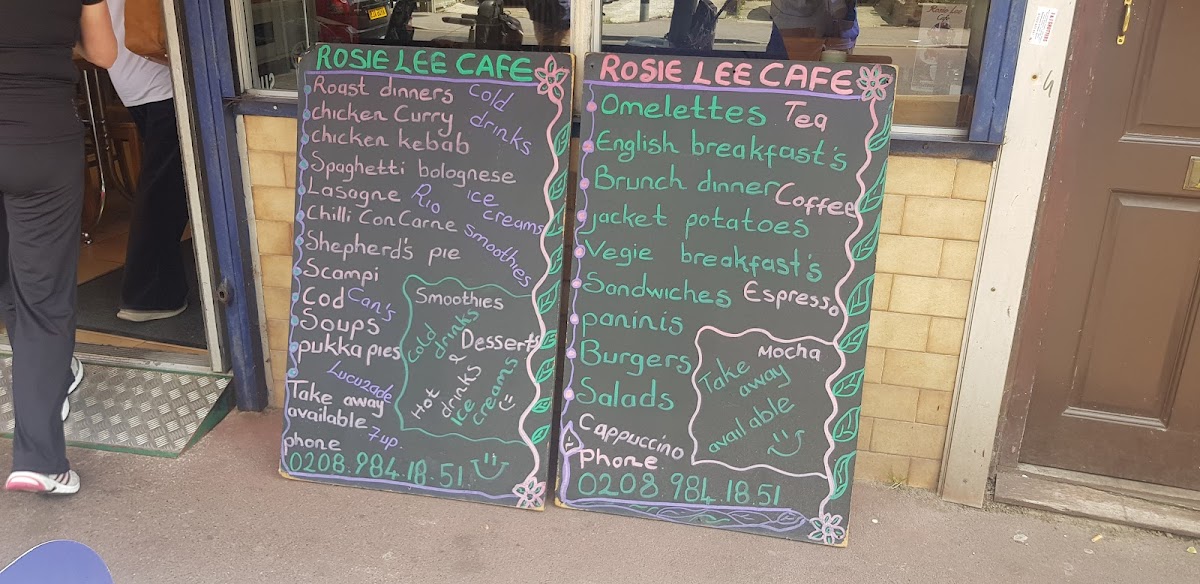 ROSIE LEE CAFE
Roast dinners
Cold drinks
chicken Curry
chicken kebab
Spaghetti bolognese
Lasagne
Rio
ice creams
Chilli Con Carne
smoothies
Shepherd's pie
Scampi
Cod
Can's
Soups
pukka pies
Lucuzade
Take away
available
7up.
phone
0208.984.18.51
Smoothies
Cold drinks
&
Desserts
Hot drinks
ice creams
ROSIE LEE CAFE
Omelettes
Tea
English breakfast's
Brunch dinner
Coffee
jacket potatoes
Vegie breakfast's
Sandwiches
Espresso
paninis
Burgers
Salads
Mocha
Take away
available
Cappuccino
phone
0208 984.18.51